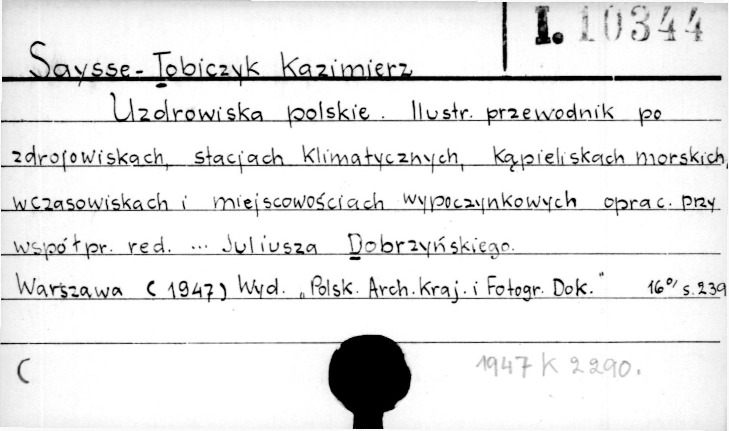 I. 10344
Saysse-Tobiczyk Kazimierz
Uzdrowiska polskie. Ilustr. przewodnik po
zdrojowiskach, stacjach klimatycznych, kąpieliskach morskich,
wczasowiskach i miejscowościach wypoczynkowych oprac. przy
współpr. red. ... Juliusza Dobrzyńskiego.
Warszawa (1947) Wyd. „Polsk. Arch. Kraj. i Fotogr. Dok.” 16° s. 239
C 1947 K 2290.